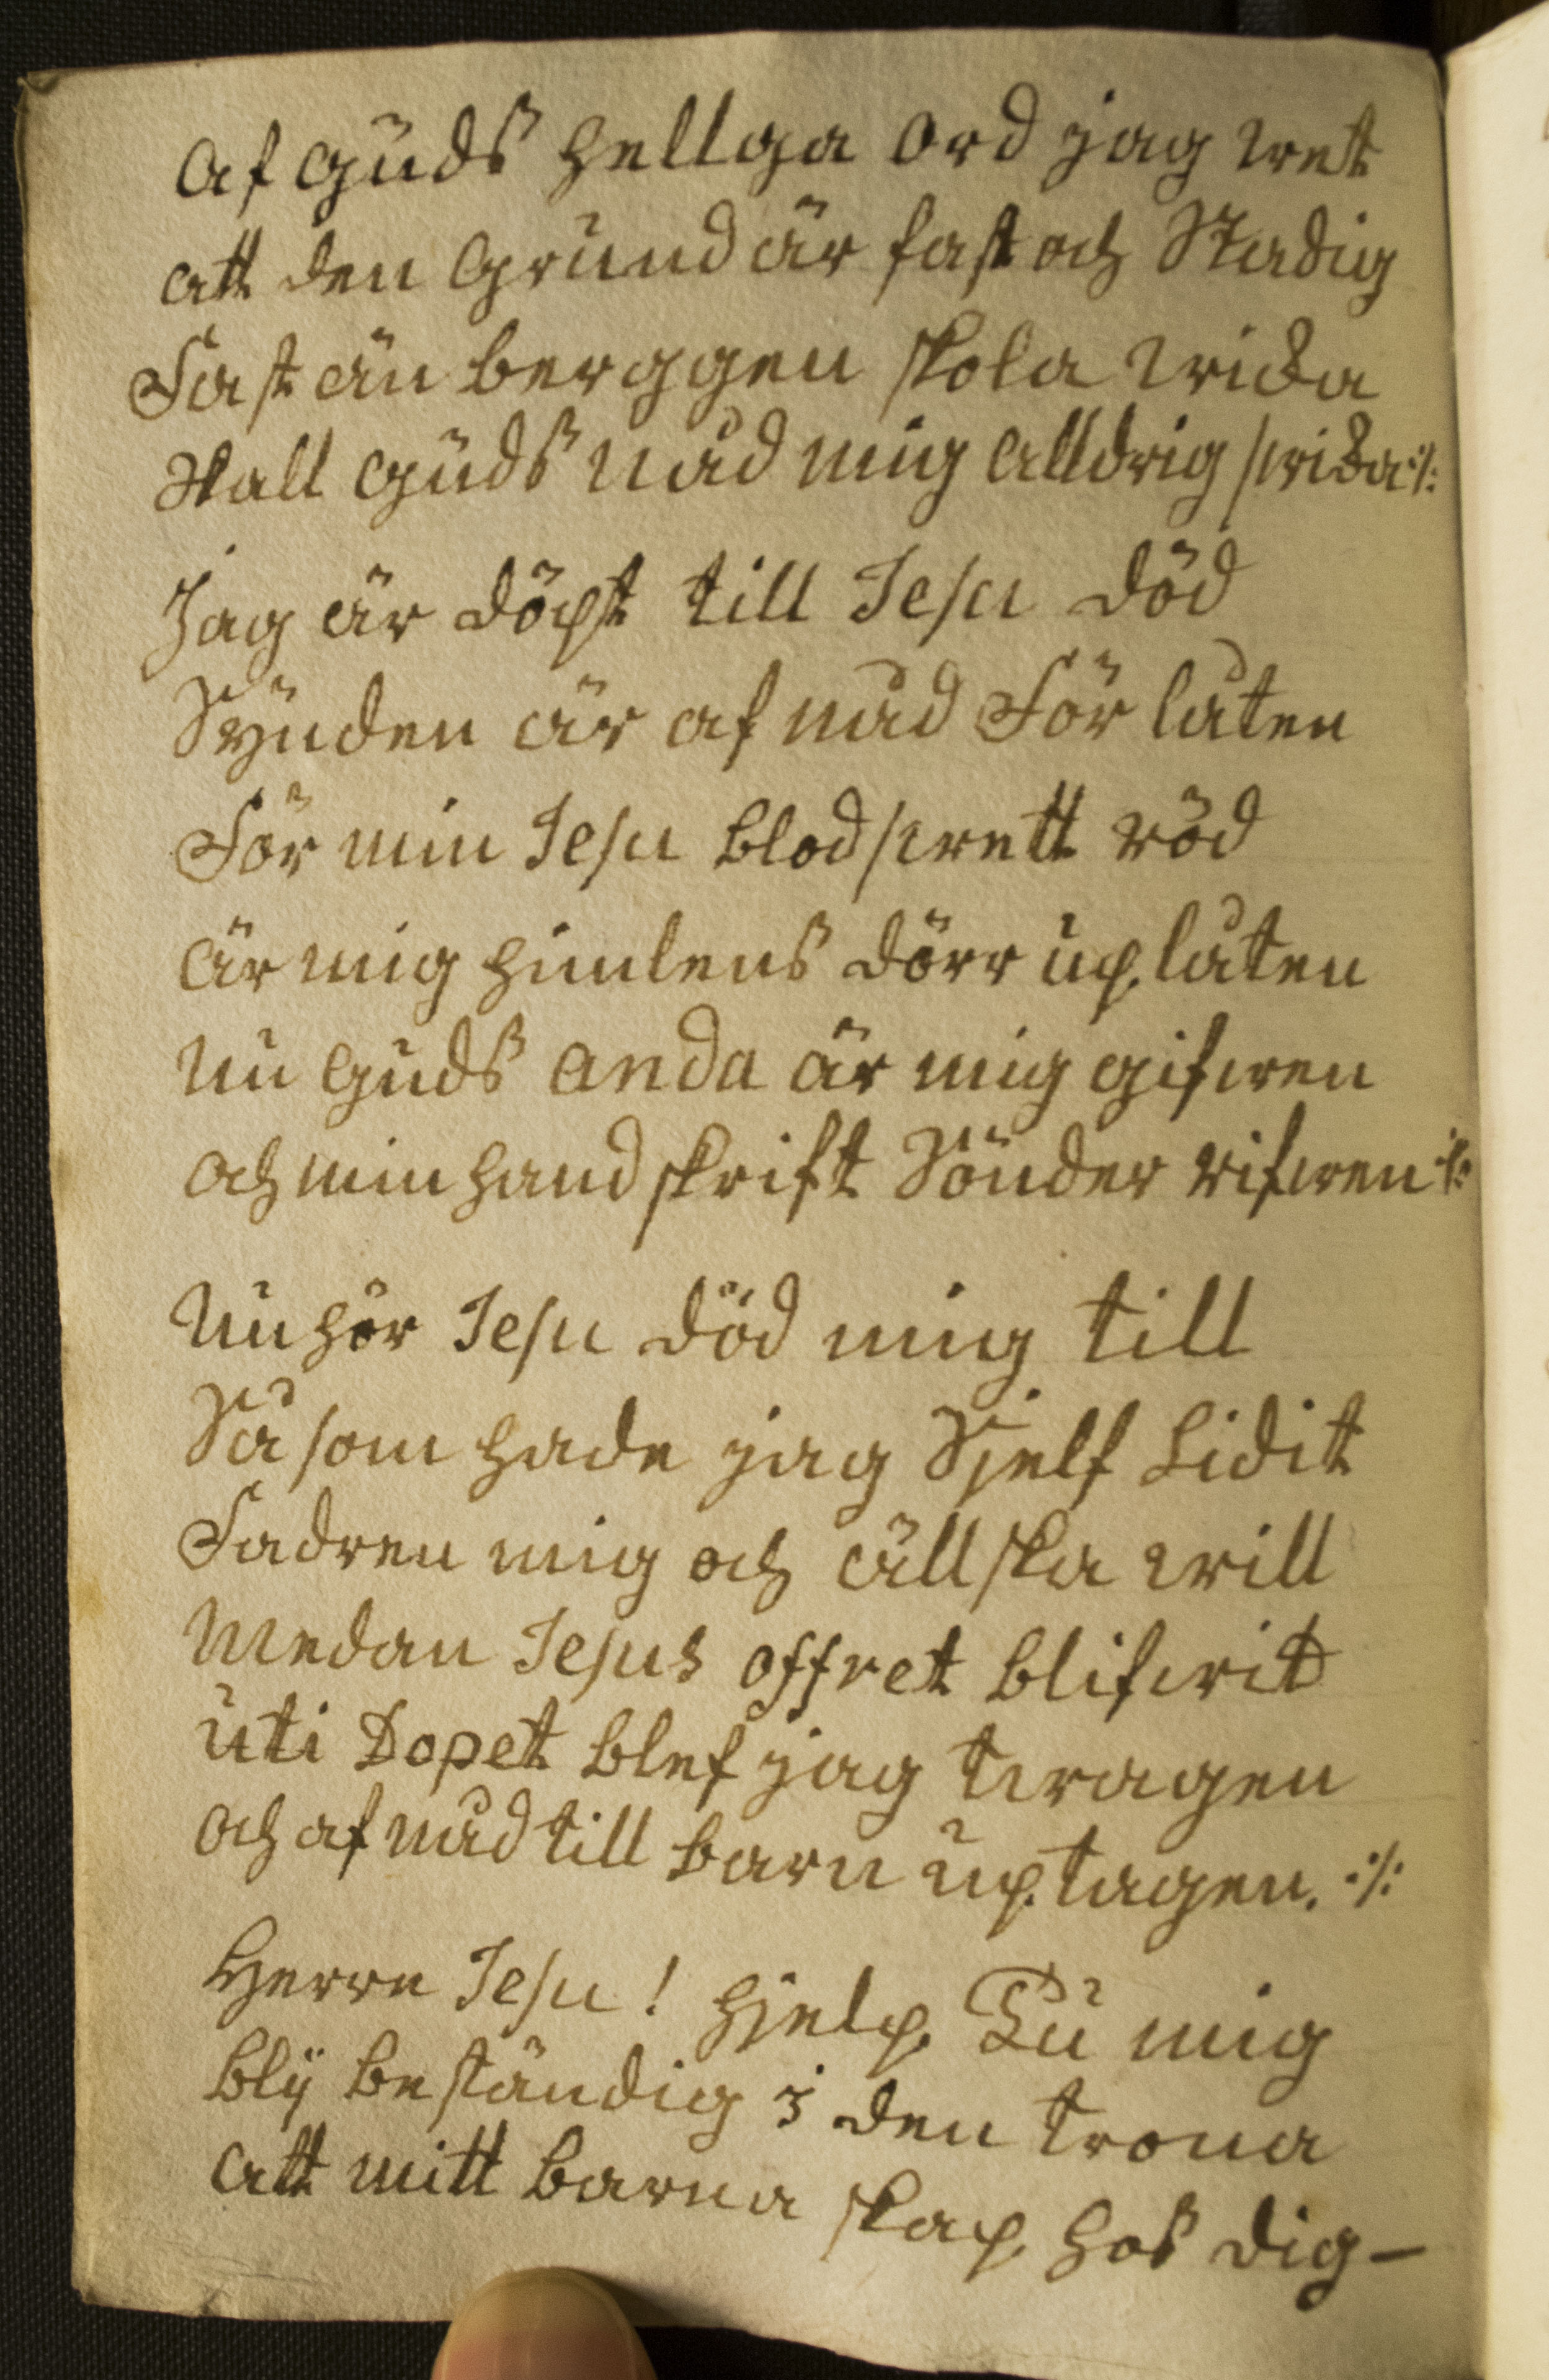 Af Guds hellga ord jag wet
att den Grund är fast och Stadig
Fast än berggen skola wicka
Skall Guds nåd mig alldrig swicka ·/:
Jag är döpt till Jesu död
Synden är af nåd För låten
För min Jesu blod swett röd
är mig himlens dörr up låten
Nu Guds anda är mig gifwen
och min hand skrift Sönder rifwen ·/:
Nu hör Jesu död mig till
Så som hade jag Sjelf Lidit
Fadren mig och ällska will
Medan Jesus offret blifwit
uti Dopet blef jag twagen
och af nåd till barn up tagen. ·/:
Herre Jesu! hjelp Du mig
blij beständig i den trona
att mitt barna skap hos dig –